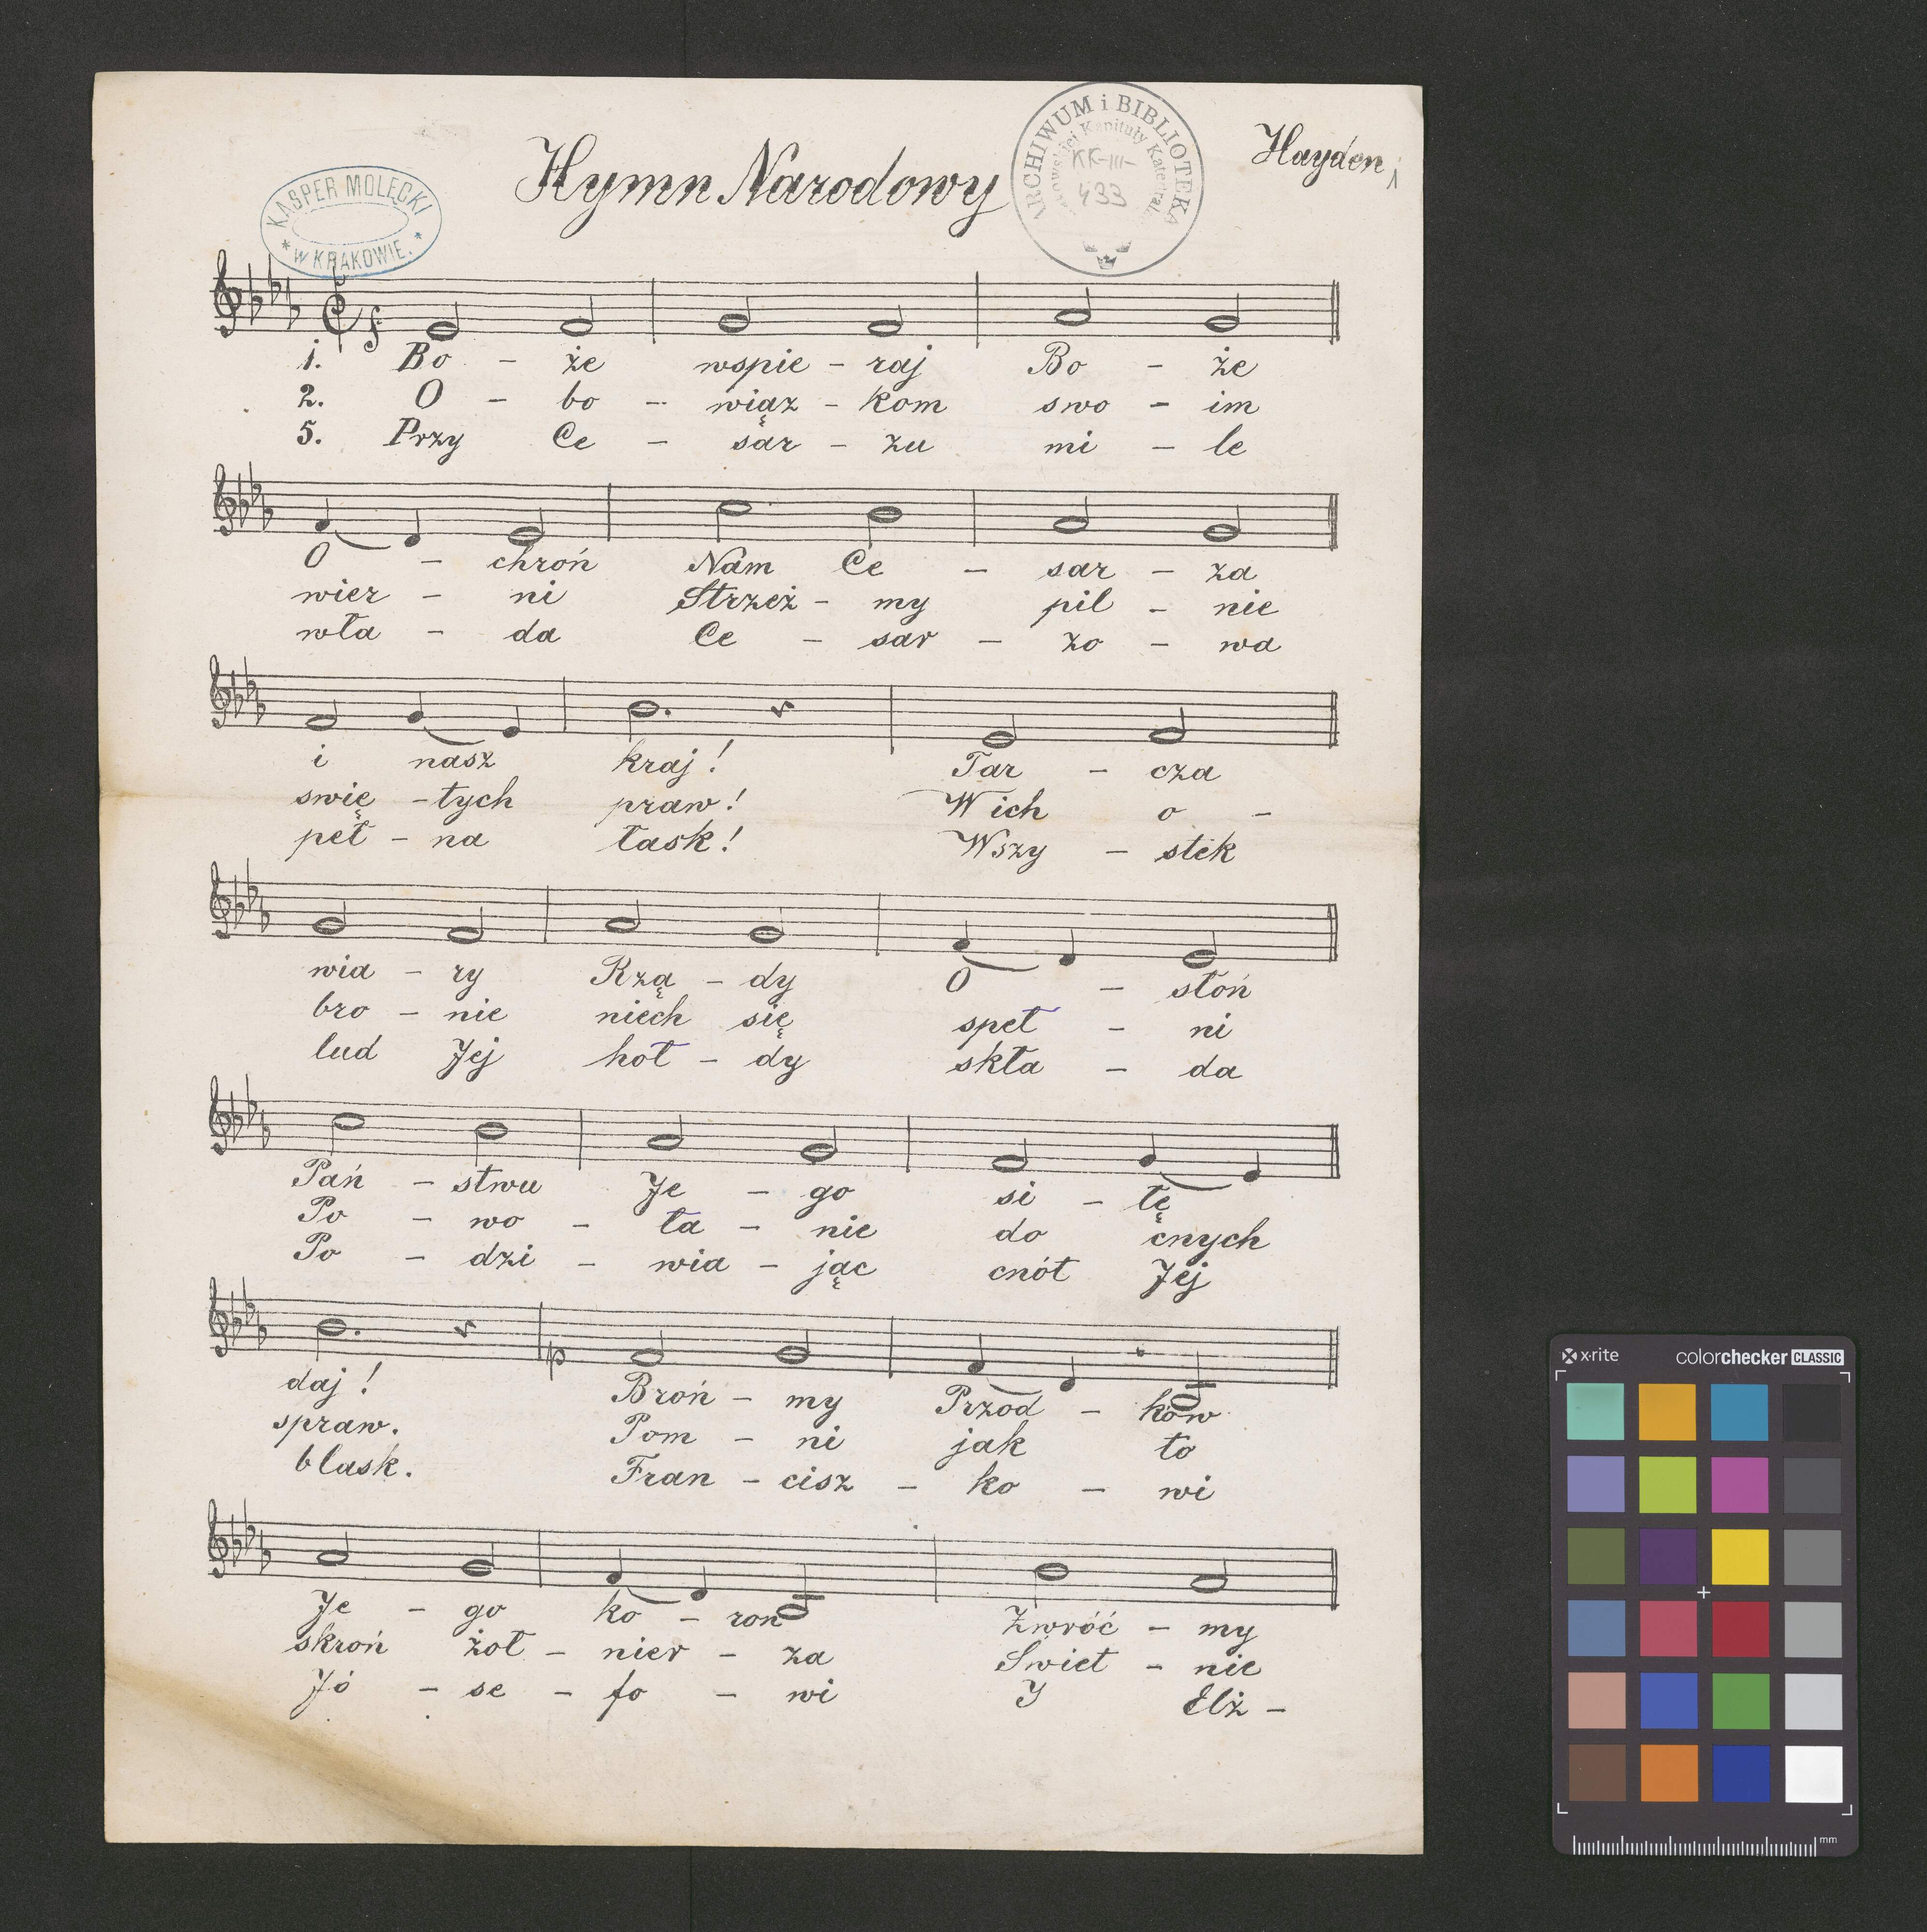 Hymn Narodowy
Hayden
KASPER MOLĘCKI
* w KRAKOWIE. *
ARCHIWUM i BIBLIOTEKA
Kapituły Katedral
KK-III-
433
1. Bo - że wspie - raj Bo - że
2. O - bo - wiąz - kom swo - im
5. Przy Ce - sar - zu mi - le
O - chroń Nam Ce - sar - za
wier - ni Strzeż - my pil - nie
wła - da Ce - sar - zo - wa
i nasz kraj! Tar - cza
swię - tych praw! W ich o -
peł - na łask! Wszy - stek
wia - ry Rzą - dy O - słoń
bro - nie niech się speł - ni
lud Jej hoł - dy skła - da
Pań - stwu Je - go si - łę
Po - wo - ła - nie do cnych
Po - dzi - wia - jąc cnót Jej
daj! Broń - my Przod - ków
spraw. Pom - ni jak to
blask. Fran - cisz - ko - wi
Je - go ko - ron Zwróć - my
skroń żoł - nier - za Swiet - nie
Jó - se - fo - wi I Elż -
x·rite colorchecker CLASSIC
mm